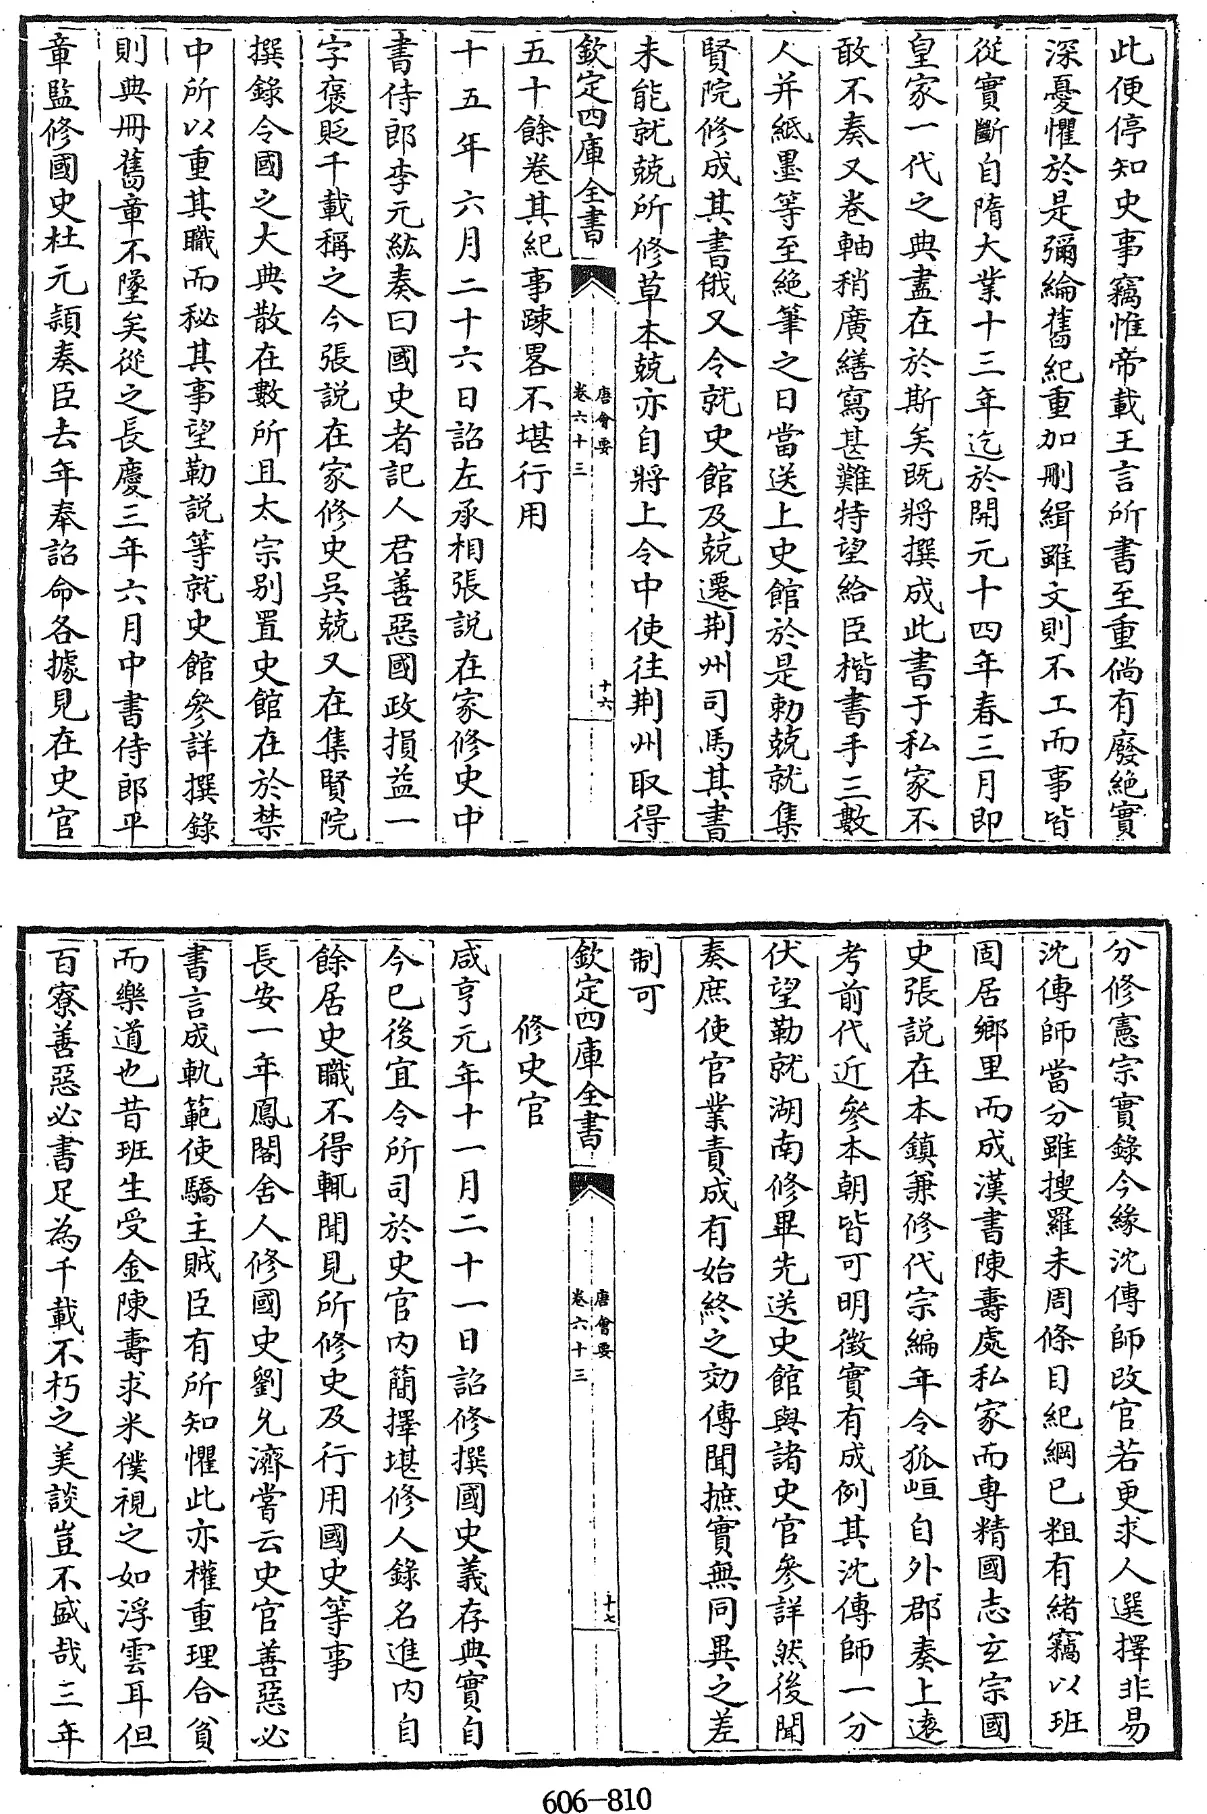 此便停知史事竊惟帝載王言所書至重倘有廢絶實
深憂懼於是彌綸舊紀重加刪緝雖文則不工而事皆
從實斷自隋大業十三年迄於開元十四年春三月即
皇家一代之典盡在於斯矣既將撰成此書于私家不
敢不奏又卷軸稍廣繕寫甚難特望給臣楷書手三數
人并紙墨等至絶筆之日當送上史館於是勅兢就集
賢院修成其書俄又令就史館及兢遷荆州司馬其書
未能就兢所修草本兢亦自將上令中使往荆州取得
欽定四庫全書
唐會要
卷六十三
十六
五十餘卷其紀事踈畧不堪行用
十五年六月二十六日詔左丞相張説在家修史中
書侍郎李元紘奏曰國史者記人君善惡國政損益一
字褒貶千載稱之今張説在家修史吳兢又在集賢院
撰錄令國之大典散在數所且太宗别置史館在於禁
中所以重其職而秘其事望勒説等就史館參詳撰錄
則典冊舊章不墜矣從之長慶三年六月中書侍郎平
章監修國史杜元頴奏臣去年奉詔命各據見在史官
分修憲宗實錄今緣沈傳師改官若更求人選擇非易
沈傳師當分雖搜羅未周條目紀綱已粗有緒竊以班
固居鄉里而成漢書陳壽處私家而專精國志玄宗國
史張説在本鎮兼修代宗編年令狐峘自外郡奏上逺
考前代近參本朝皆可明徴實有成例其沈傳師一分
伏望勒就湖南修畢先送史館與諸史官參詳然後聞
奏庶使官業責成有始終之効傳聞摭實無同異之差
制可
欽定四庫全書
唐會要
卷六十三
十七
修史官
咸亨元年十一月二十一日詔修撰國史義存典實自
今已後宜令所司於史官内簡擇堪修人錄名進内自
餘居史職不得輒聞見所修史及行用國史等事
長安一年鳳閣舍人修國史劉允濟嘗云史官善惡必
書言成軌範使驕主賊臣有所知懼此亦權重理合貧
而樂道也昔班生受金陳壽求米僕視之如浮雲耳但
百寮善惡必書足為千載不朽之美談豈不盛哉三年
606-810